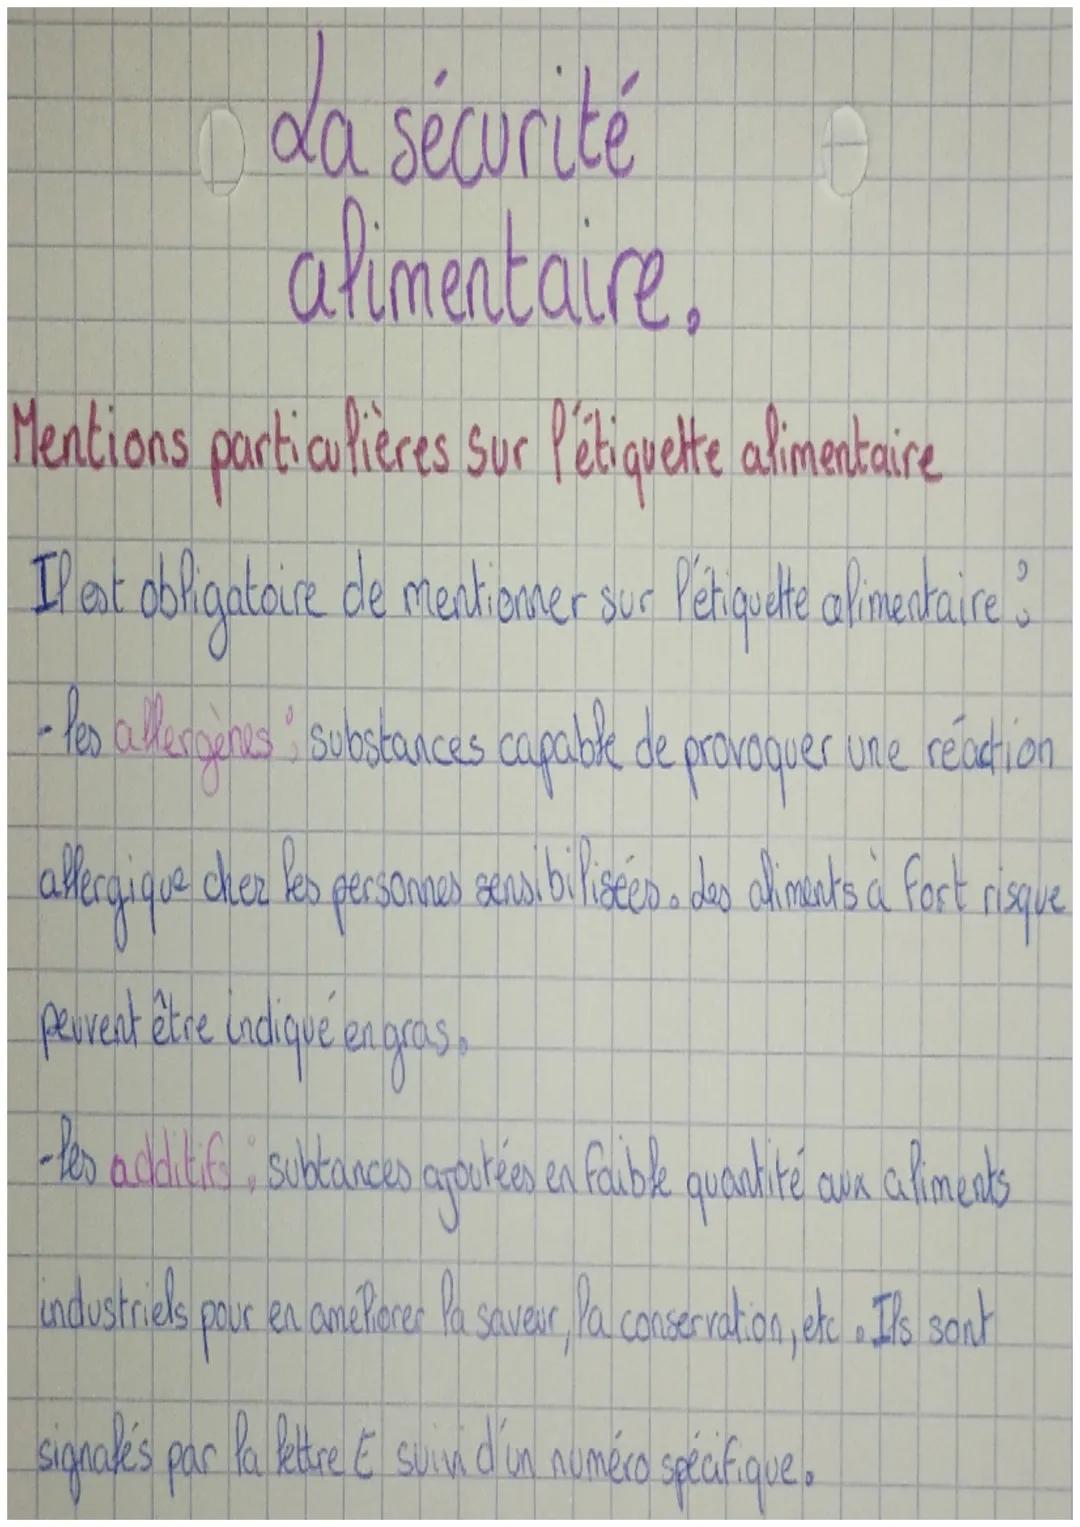 La sécurité
alimentaire.
Mentions particulières sur l'étiquette alimentaire
Il est obligatoire de mentionner sur l'étiquette alimentaire :
- les allergènes : substances capable de provoquer une réaction
allergique chez les personnes sensibilisées. Les aliments à fort risque
peuvent être indiqué en gras.
- les additifs : subtances ajoutées en faible quantité aux aliments
industriels pour en améliorer la saveur, la conservation, etc. Ils sont
signalés par la lettre E suivi d'un numéro spécifique.